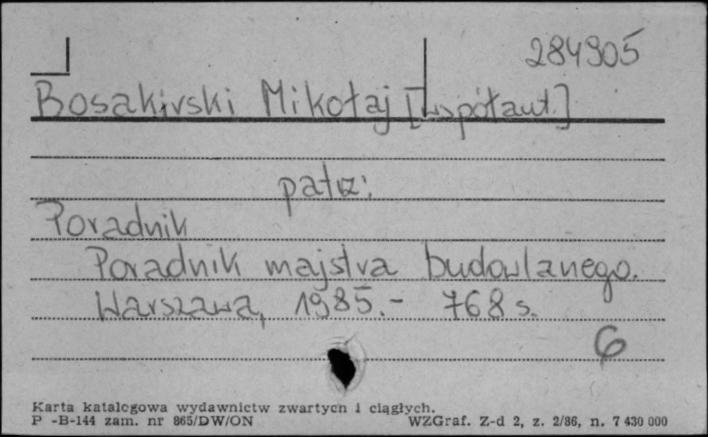 284905
Bosakirski Mikołaj [współaut.]
patrz:
Poradnik
Poradnik majstra budowlanego.
Warszawa, 1985.- 768 s.
6
Karta katalogowa wydawnictw zwartych i ciągłych.
P -B-144 zam. nr 865/DW/ON WZGraf. Z-d 2, z. 2/86, n. 7 430 000